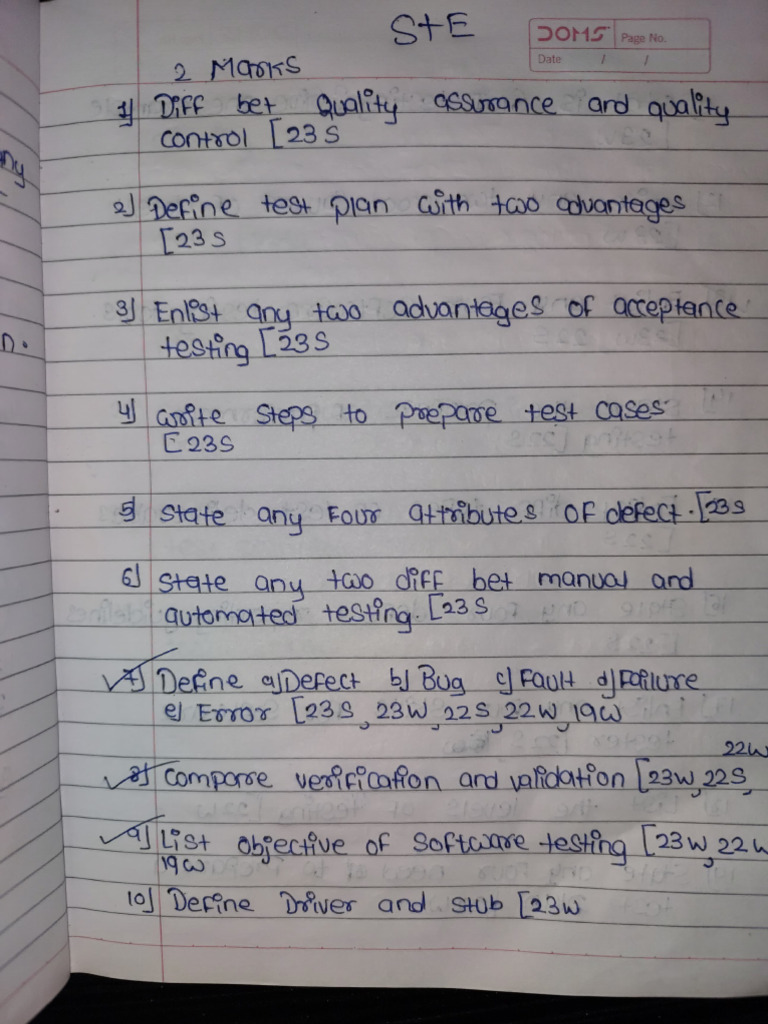 STE
DOMS Page No.
Date / /
2 Marks
1) Diff bet Quality assurance and quality
control [23S
2) Define test plan with two advantages
[23S
3) Enlist any two advantages of acceptance
testing [23S
4) write steps to prepare test cases
[23S
5) State any four attributes of defect. [23S
6) State any two diff bet manual and
automated testing. [23S
7) Define a) Defect b) Bug c) Fault d) Failure
e) Error [23S, 23W, 22S, 22W, 19W
22W
8) Compare verification and validation [23W, 22S,
9) List objective of software testing [23W, 22W
19W
10) Define Driver and stub [23W
ny
n.